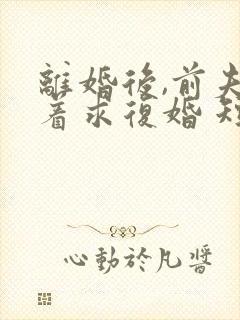 離婚後,前夫
着求復婚 短
心動於凡醬